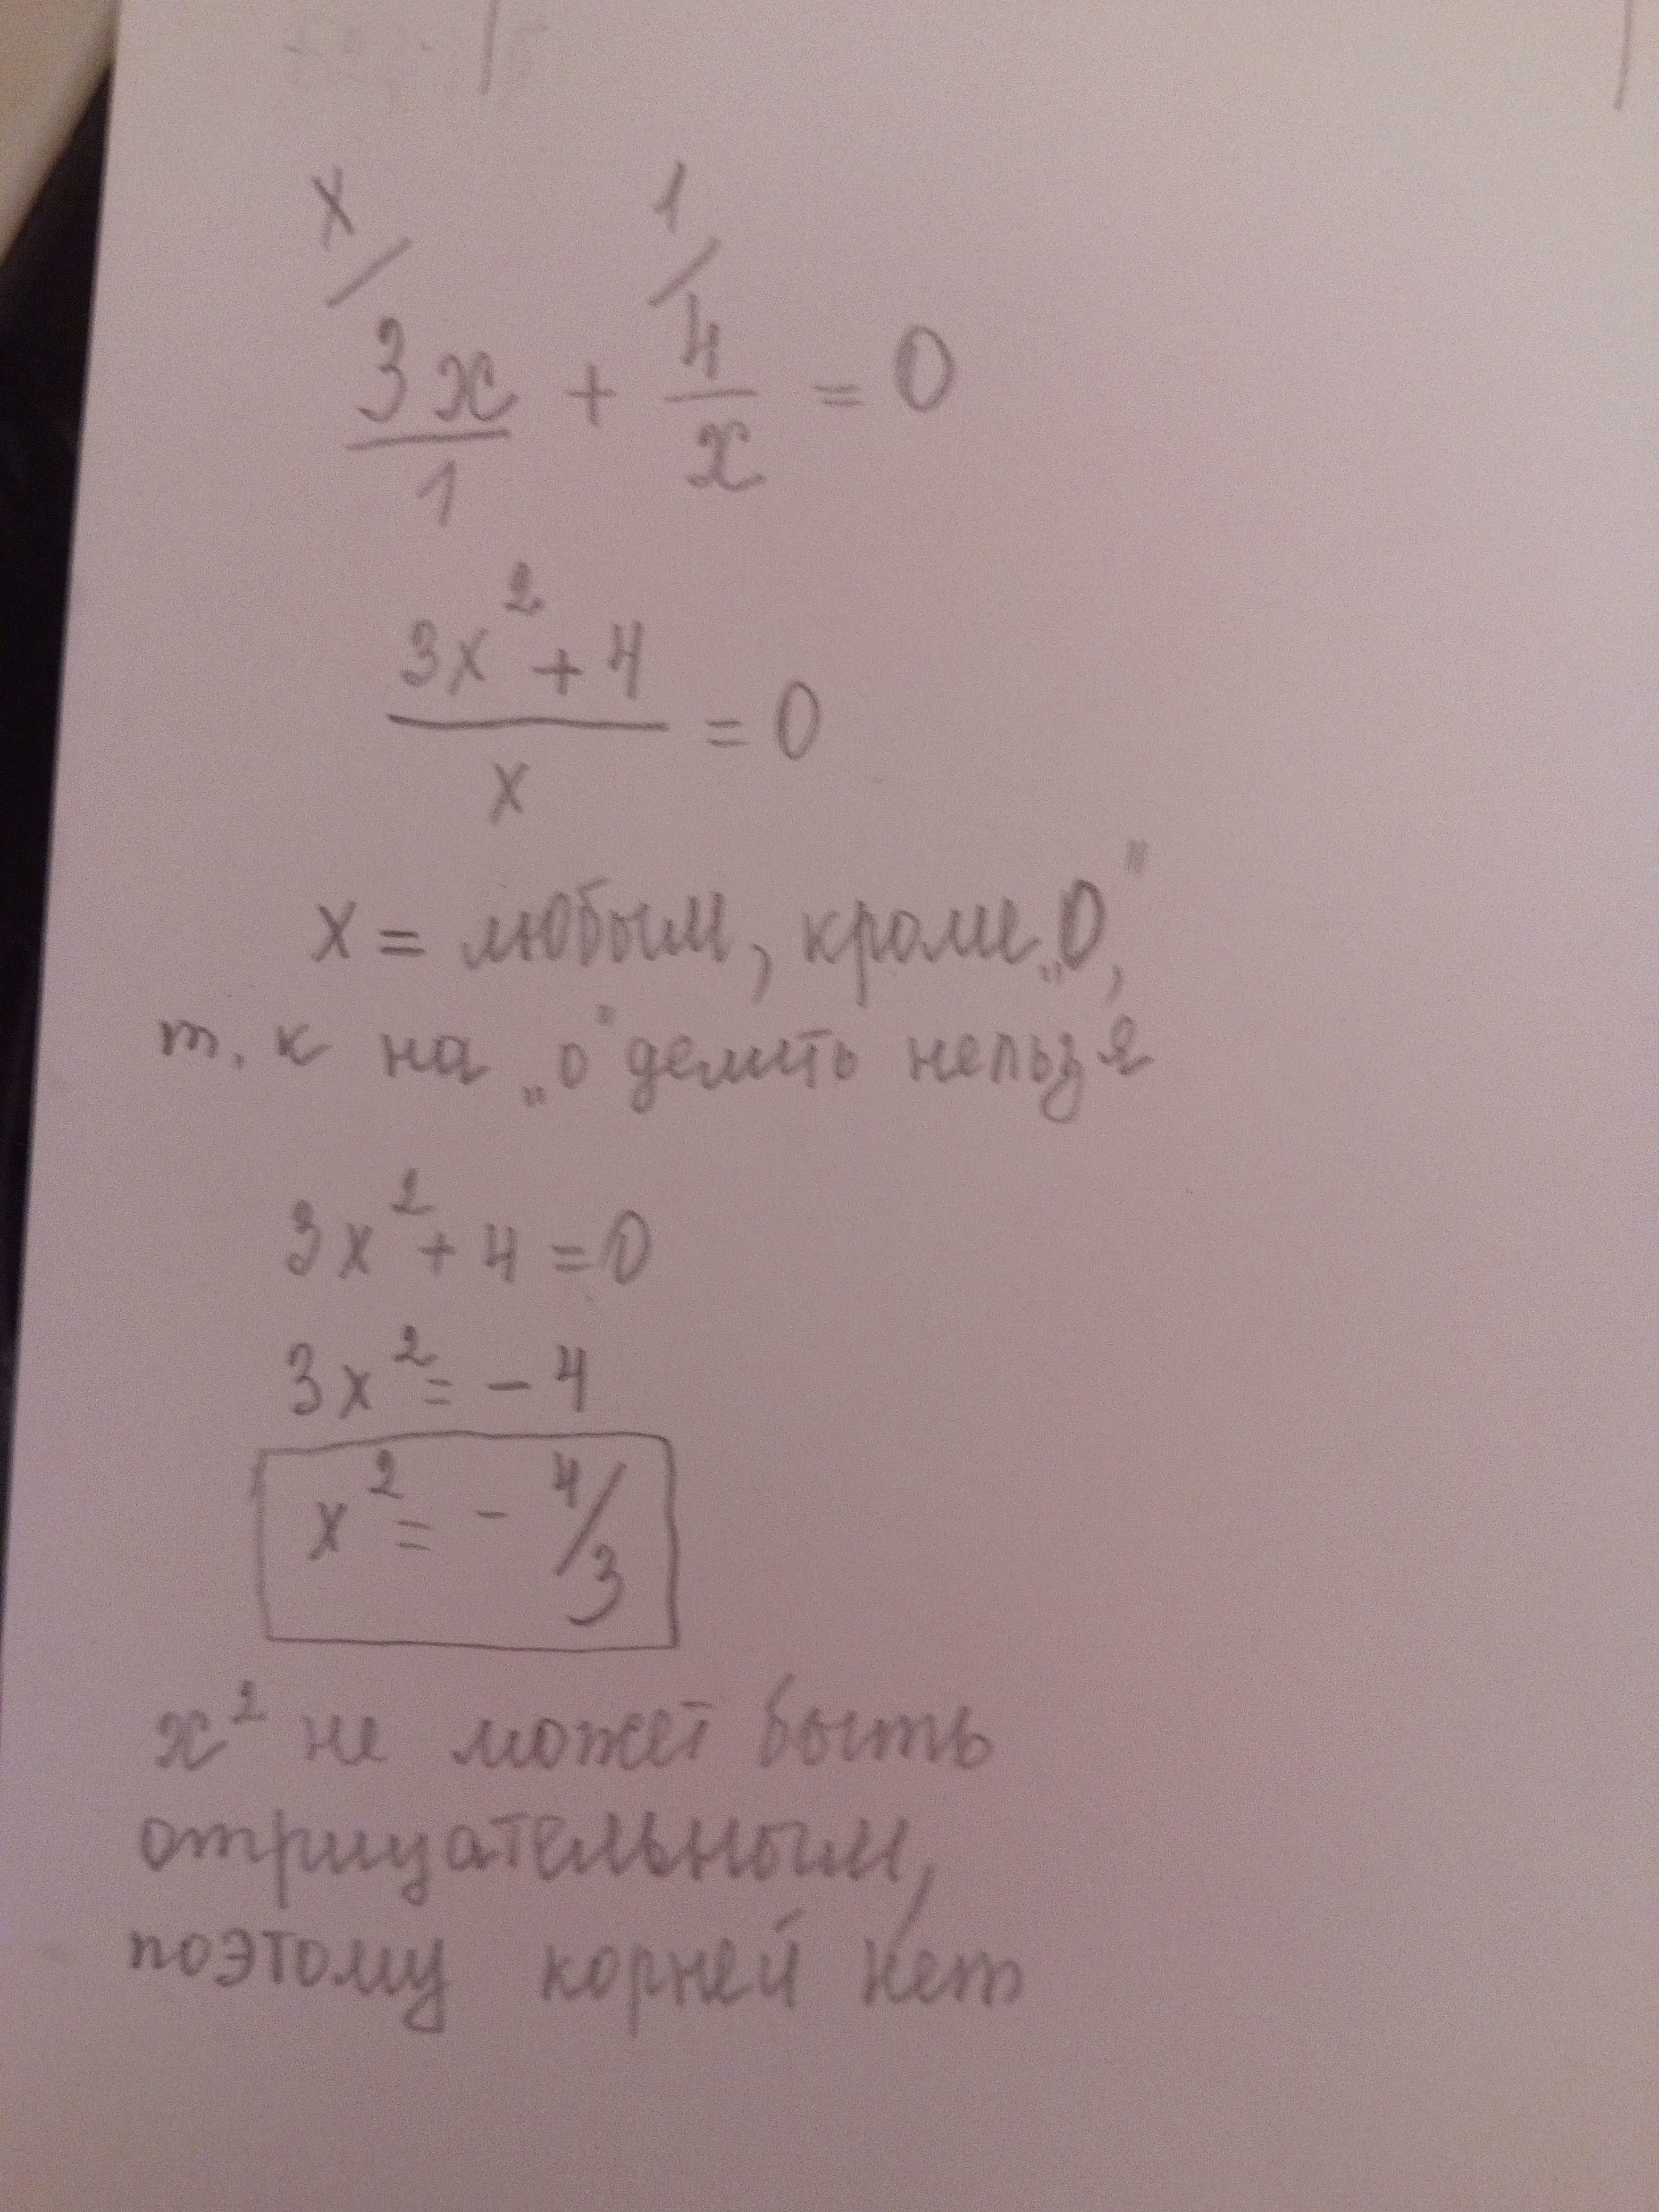 x/ 1/
3x/1 + 4/x = 0
(3x² + 4)/x = 0
x = любым, кроме „0",
т. к на „0" делить нельзя
3x² + 4 = 0
3x² = - 4
x² = - 4/3
x² не может быть
отрицательным,
поэтому корней нет